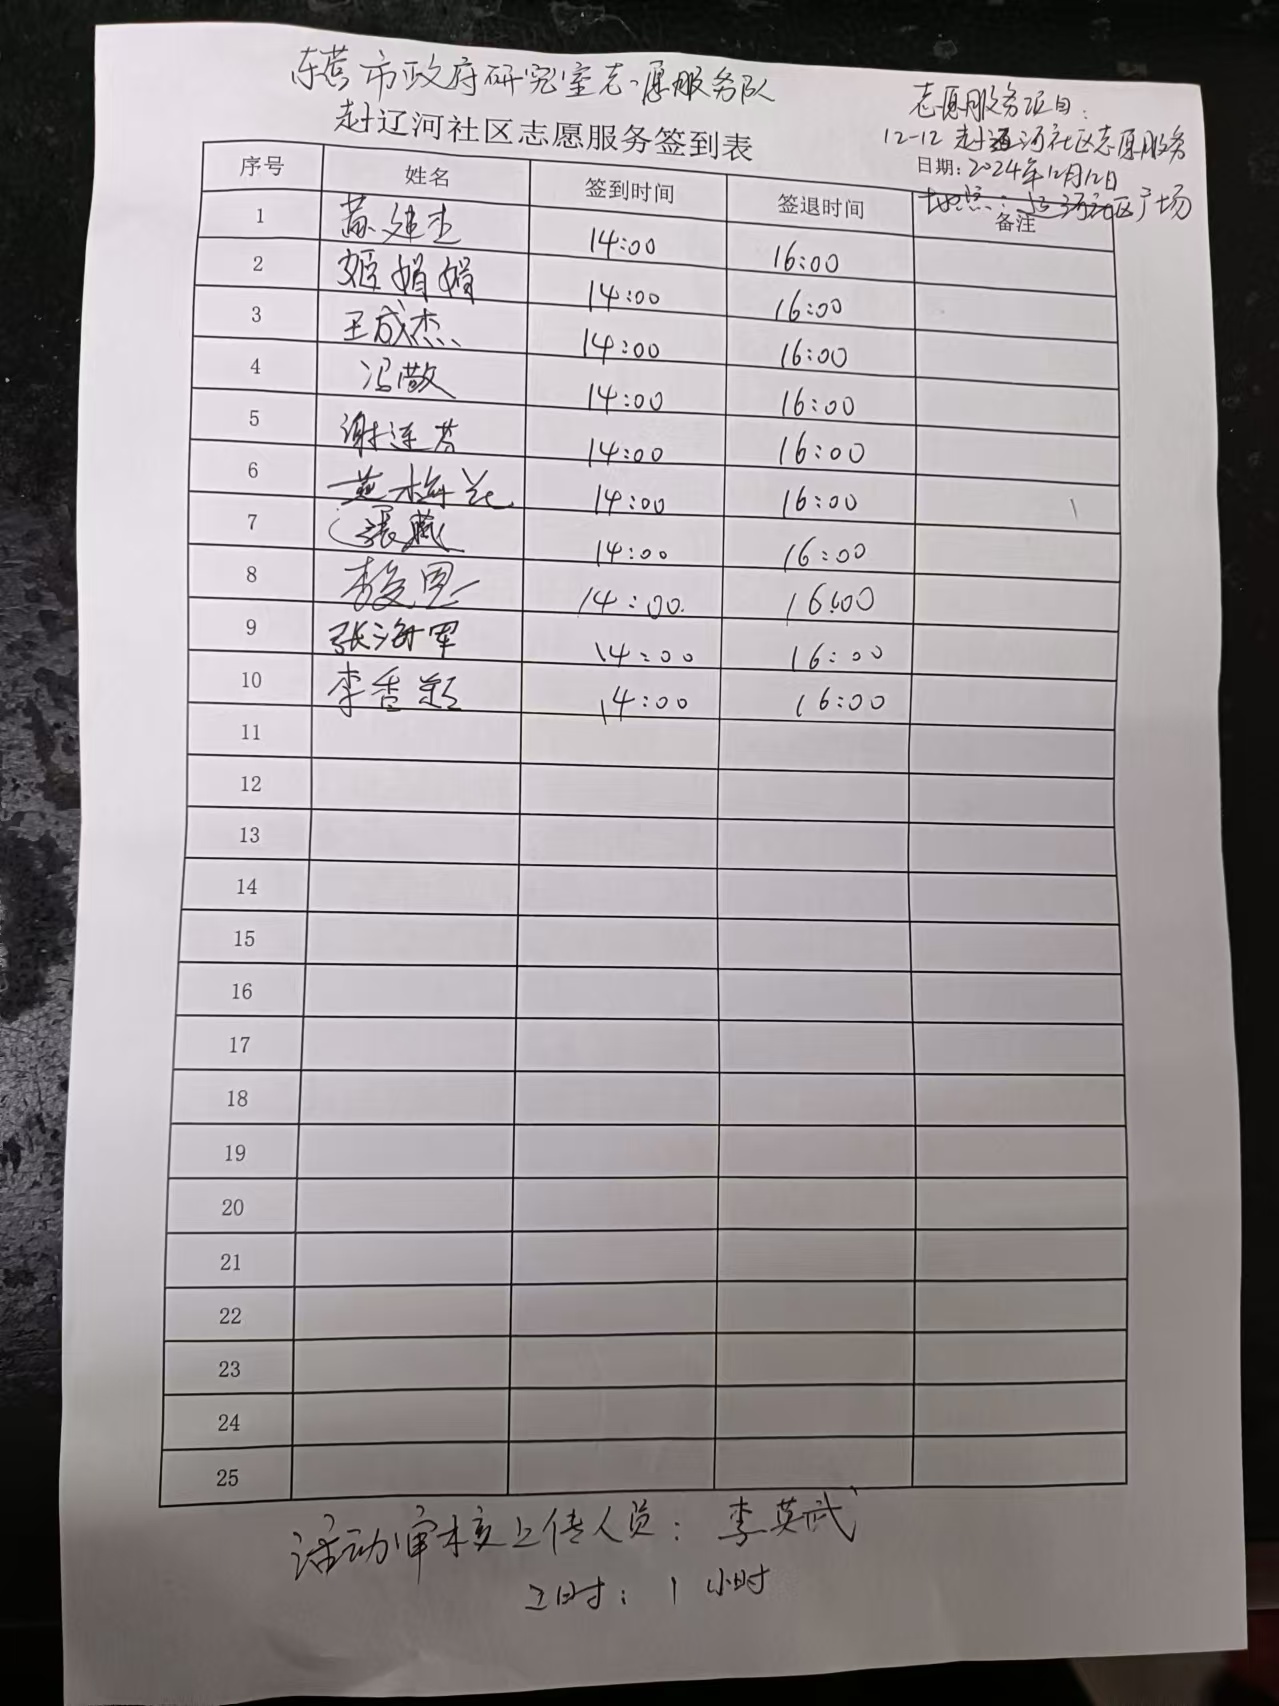 市政府研究室志愿服务队
赴辽河社区志愿服务签到表
志愿服务项目：
12-12 赴河社区志愿服务
日期：2024年12月12日
地点：区广场
序号 姓名 签到时间 签退时间 备注
1 14:00 16:00
2 姬娟娟 14:00 16:00
3 王成杰 14:00 16:00
4 冯敬 14:00 16:00
5 谢连芬 14:00 16:00
6 梅花 14:00 16:00
7 張燕 14:00 16:00
8 李 14:00 16:00
9 张海军 14:00 16:00
10 李香 14:00 16:00
11
12
13
14
15
16
17
18
19
20
21
22
23
24
25
活动审核上传人员：李英武
工时：1小时